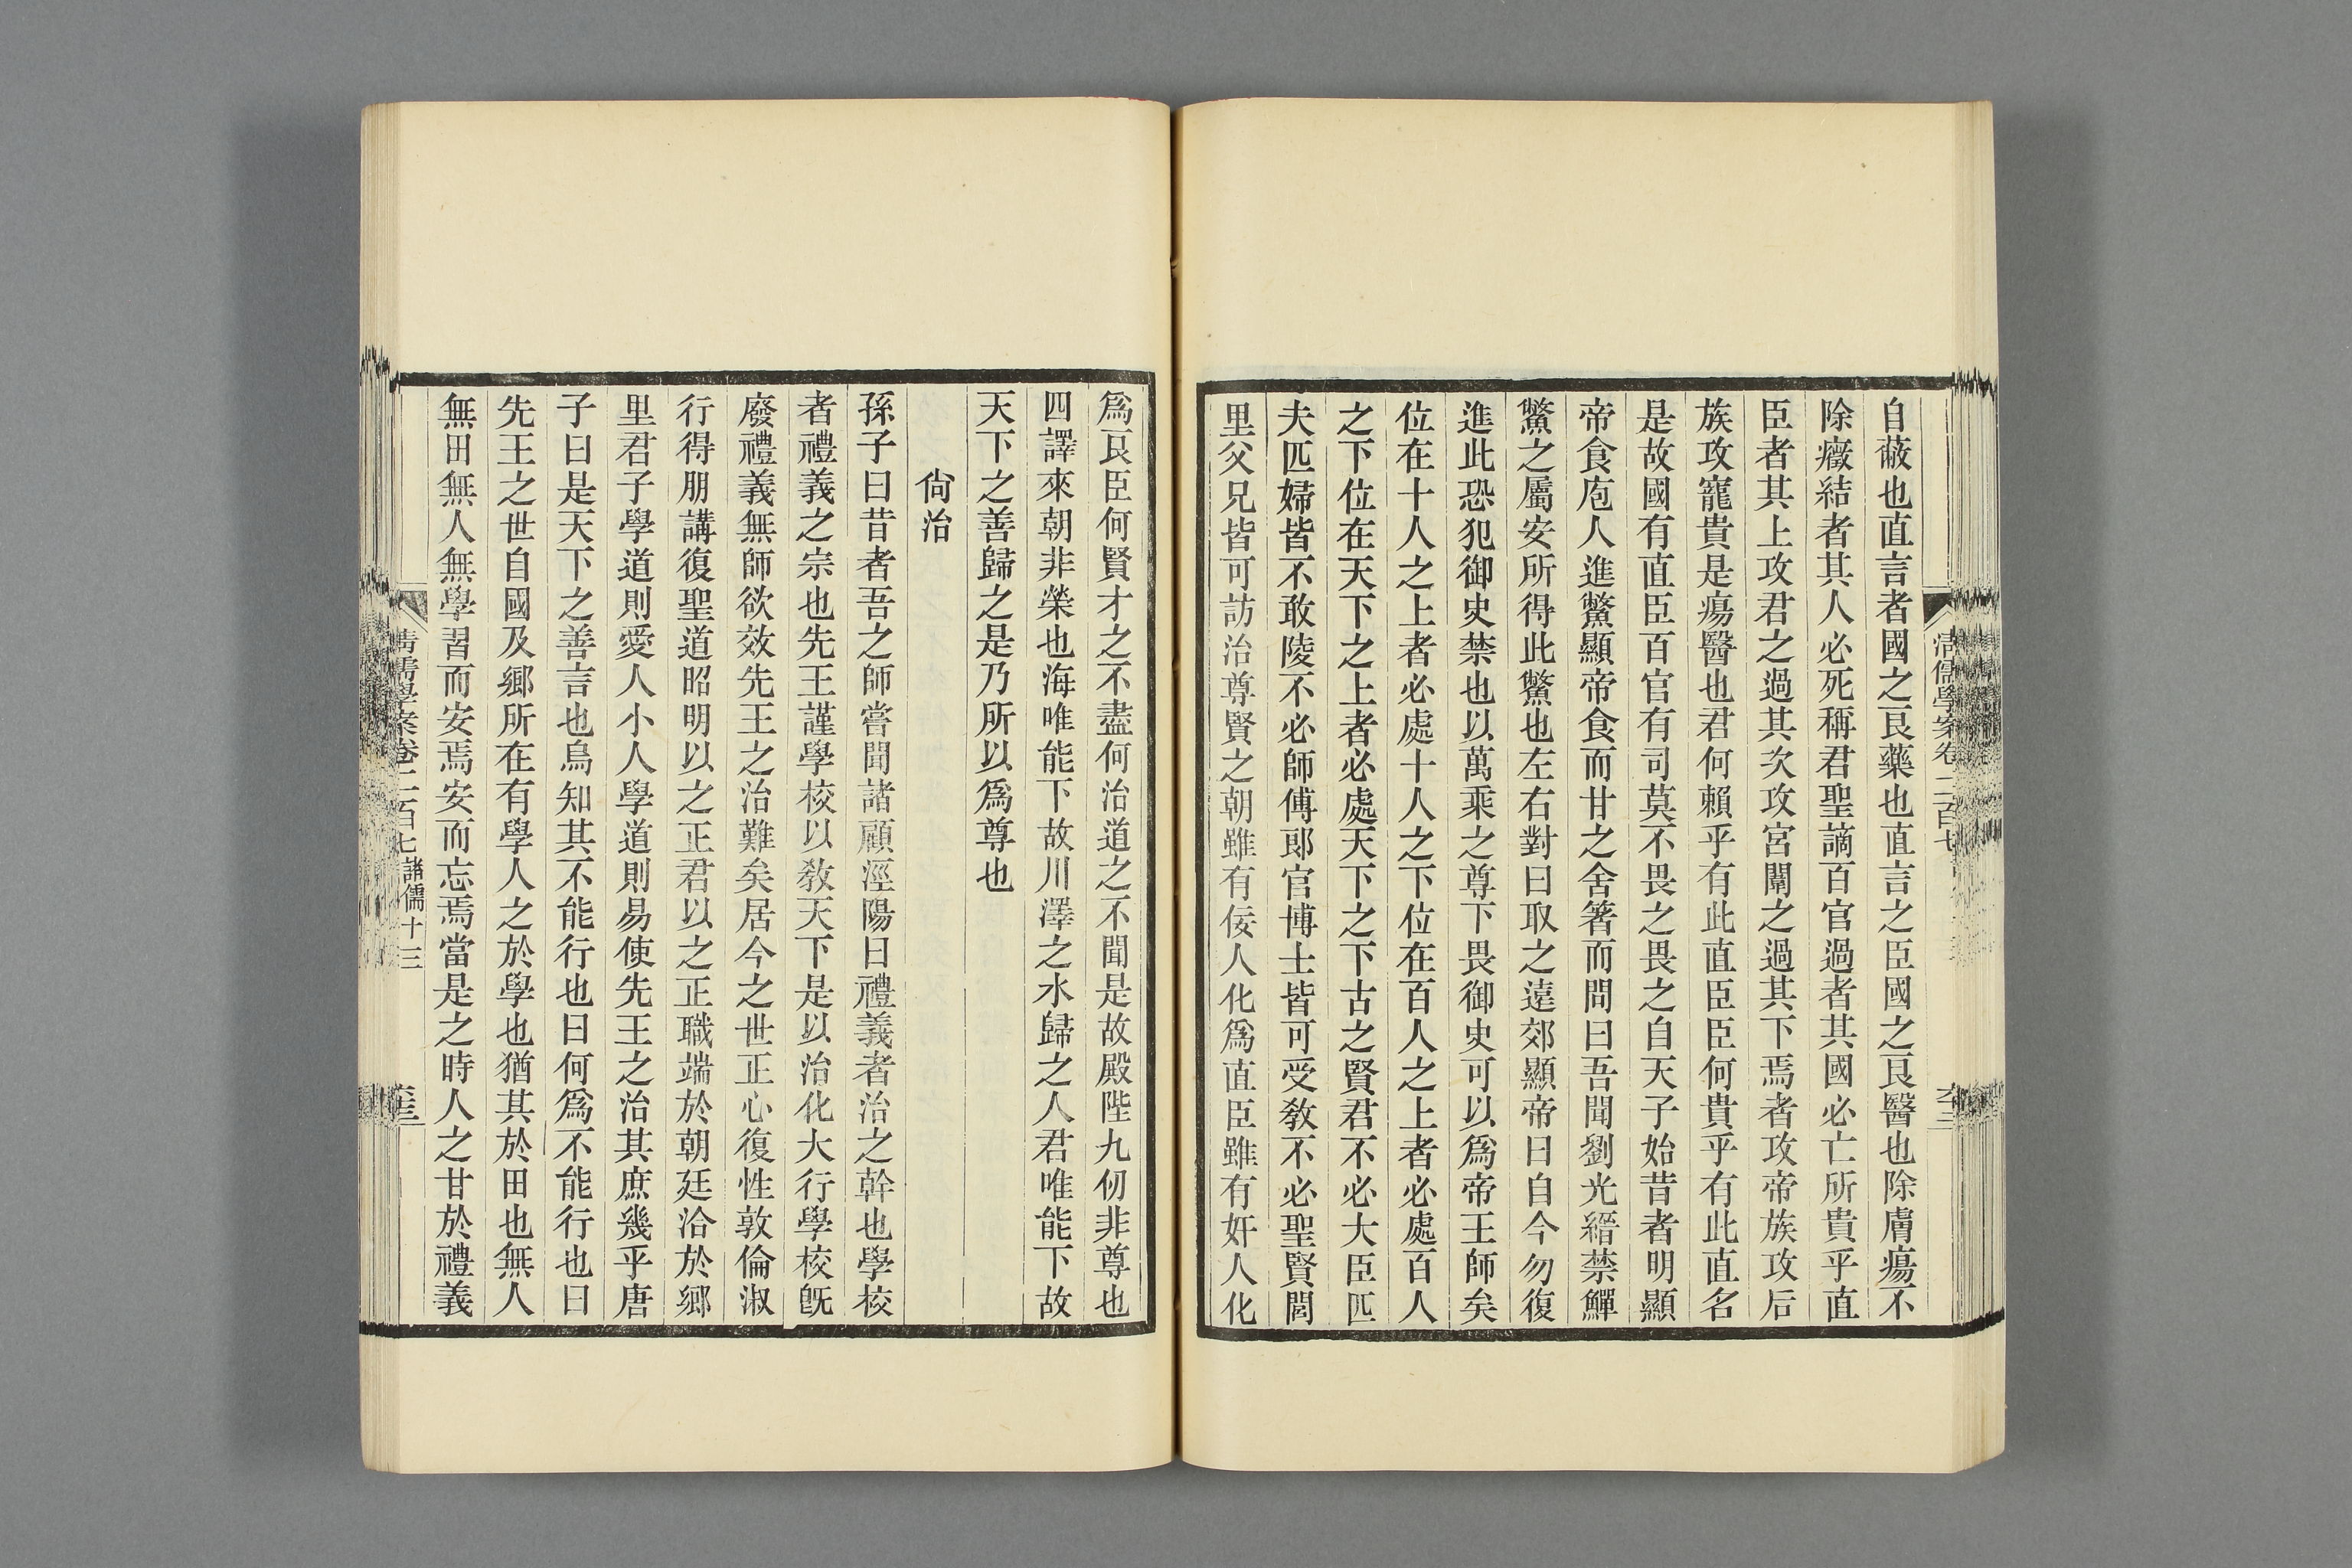 清儒學案卷二百七
自蔽也直言者國之良藥也直言之臣國之良醫也除膚瘍不
除癥結者其人必死稱君聖謫百官過者其國必亡所貴乎直
臣者其上攻君之過其次攻宮闈之過其下焉者攻帝族攻后
族攻寵貴是瘍醫也君何賴乎有此直臣臣何貴乎有此直名
是故國有直臣百官有司莫不畏之畏之自天子始昔者明顯
帝食庖人進鱉顯帝食而甘之舍箸而問曰吾聞劉光縉禁鱓
鱉之屬安所得此鱉也左右對曰取之遠郊顯帝曰自今勿復
進此恐犯御史禁也以萬乘之尊下畏御史可以爲帝王師矣
位在十人之上者必處十人之下位在百人之上者必處百人
之下位在天下之上者必處天下之下古之賢君不必大臣匹
夫匹婦皆不敢陵不必師傅郞官博士皆可受敎不必聖賢閭
里父兄皆可訪治尊賢之朝雖有佞人化爲直臣雖有奸人化
爲良臣何賢才之不盡何治道之不聞是故殿陛九仞非尊也
四譯來朝非榮也海唯能下故川澤之水歸之人君唯能下故
天下之善歸之是乃所以爲尊也
尙治
孫子曰昔者吾之師嘗聞諸顧涇陽曰禮義者治之幹也學校
者禮義之宗也先王謹學校以敎天下是以治化大行學校旣
廢禮義無師欲效先王之治難矣居今之世正心復性敦倫淑
行得朋講復聖道昭明以之正君以之正職端於朝廷洽於鄕
里君子學道則愛人小人學道則易使先王之治其庶幾乎唐
子曰是天下之善言也烏知其不能行也曰何爲不能行也曰
先王之世自國及鄕所在有學人之於學也猶其於田也無人
無田無人無學習而安焉安而忘焉當是之時人之甘於禮義
淸儒學案卷二百七 諸儒十三